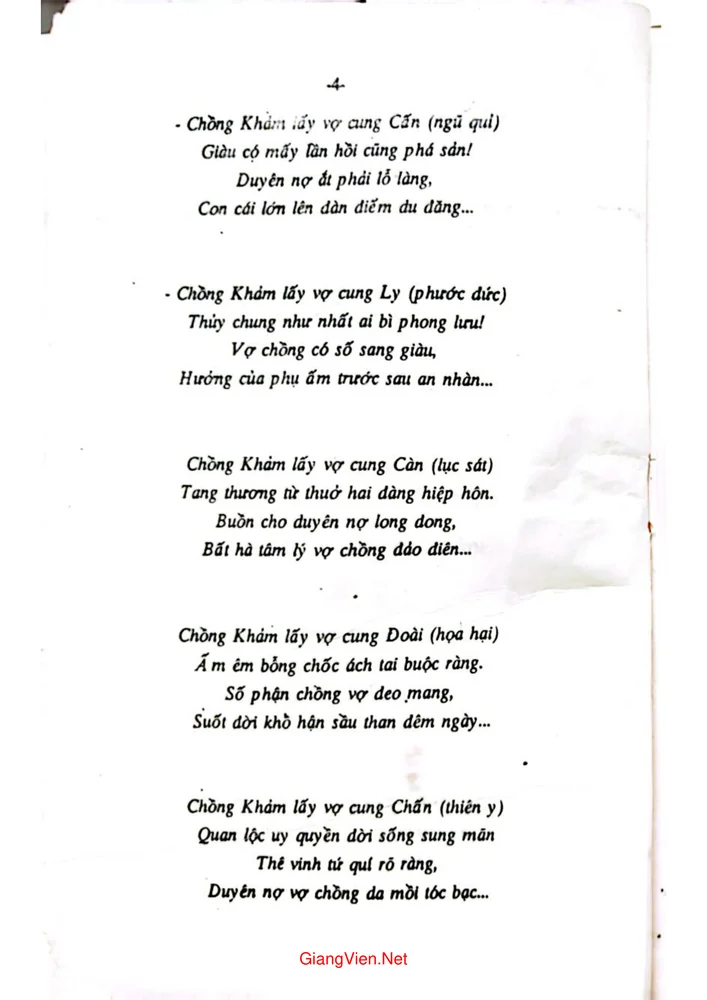 -4-
- Chồng Khảm lấy vợ cung Cấn (ngũ quỉ)
Giàu có mấy lần hồi cũng phá sản!
Duyên nợ ắt phải lỗ làng,
Con cái lớn lên dàn điếm du đăng...
- Chồng Khảm lấy vợ cung Ly (phước đức)
Thủy chung như nhất ai bì phong lưu!
Vợ chồng có số sang giàu,
Hưởng của phụ ấm trước sau an nhàn...
Chồng Khảm lấy vợ cung Càn (lục sát)
Tang thương từ thuở hai dàng hiệp hôn.
Buồn cho duyên nợ long dong,
Bất hà tâm lý vợ chồng đảo điên...
Chồng Khảm lấy vợ cung Đoài (họa hại)
Ấm êm bỗng chốc ách tai buộc ràng.
Số phận chồng vợ deo mang,
Suốt dời khổ hận sầu than dêm ngày...
Chồng Khảm lấy vợ cung Chấn (thiên y)
Quan lộc uy quyền dời sống sung mãn
Thê vinh tứ quí rõ ràng,
Duyên nợ vợ chồng da mồi tóc bạc...
GiangVien.Net